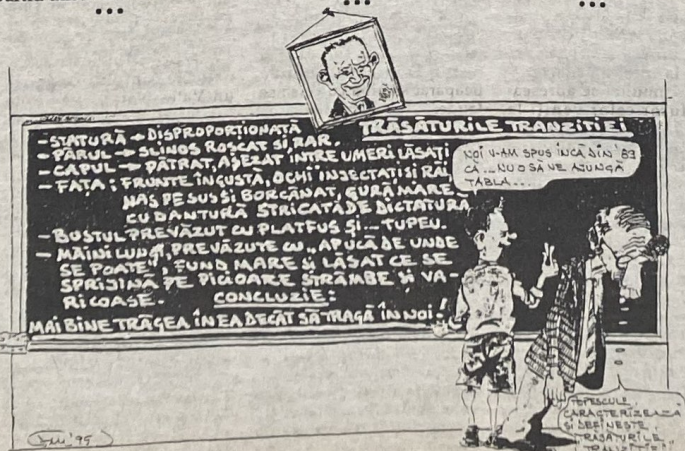 TRĂSĂTURILE TRANZIȚIEI
- STATURĂ → DISPROPORȚIONATĂ
- PĂRUL → SLINOS ROȘCAT ȘI RAR.
- CAPUL → PĂTRAT, AȘEZAT ÎNTRE UMERI LĂSAȚI
- FAȚA: FRUNTE ÎNGUSTĂ, OCHI INJECTAȚI ȘI RĂI,
NAS PE SUS ȘI BORCĂNAT, GURĂ MARE
CU DANTURĂ STRICATĂ DE DICTATURĂ
- BUSTUL PREVĂZUT CU PLATFUS ȘI... TUPEU.
- MÂINI LUNGI, PREVĂZUTE CU „APUCĂ DE UNDE
SE POATE", FUND MARE ȘI LĂSAT CE SE
SPRIJINĂ PE PICIOARE STRÂMBE ȘI VA-
RICOASE. CONCLUZIE:
MAI BINE TRĂGEA ÎN EA DECÂT SĂ TRAGĂ ÎN NOI!
NOI V-AM SPUS ÎNCĂ DIN '89
CĂ... NU O SĂ VE AJUNGĂ
TABLA...
POPESCULE,
CARACTERIZEAZĂ
ȘI DEFINEȘTE
TRĂSĂTURILE
TRANZIȚIEI"
'95